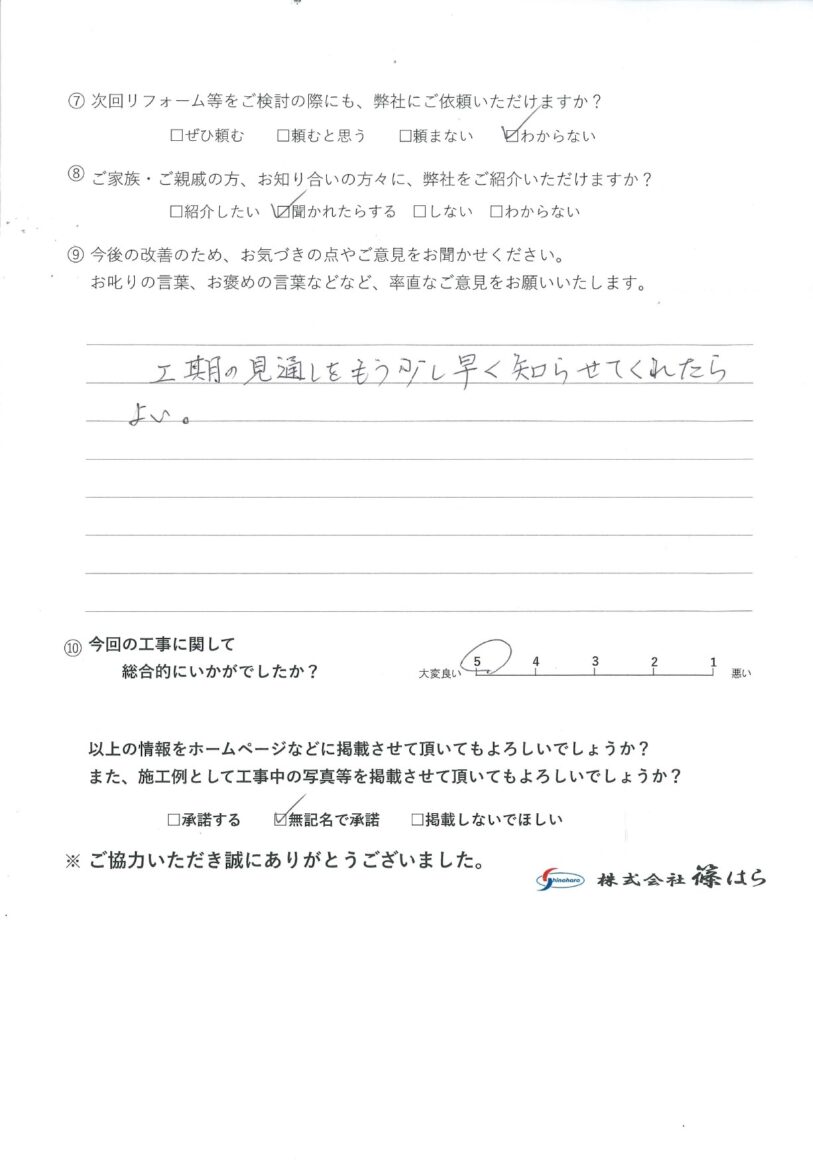 ⑦ 次回リフォーム等をご検討の際にも、弊社にご依頼いただけますか？
□ぜひ頼む □頼むと思う □頼まない ☑わからない
⑧ ご家族・ご親戚の方、お知り合いの方々に、弊社をご紹介いただけますか？
□紹介したい ☑聞かれたらする □しない □わからない
⑨ 今後の改善のため、お気づきの点やご意見をお聞かせください。
お叱りの言葉、お褒めの言葉などなど、率直なご意見をお願いいたします。
工期の見通しをもう少し早く知らせてくれたら
よい。
⑩ 今回の工事に関して
総合的にいかがでしたか？
大変良い 5 4 3 2 1 悪い
以上の情報をホームページなどに掲載させて頂いてもよろしいでしょうか？
また、施工例として工事中の写真等を掲載させて頂いてもよろしいでしょうか？
□承諾する ☑無記名で承諾 □掲載しないでほしい
※ ご協力いただき誠にありがとうございました。
Shinohara 株式会社 篠はら